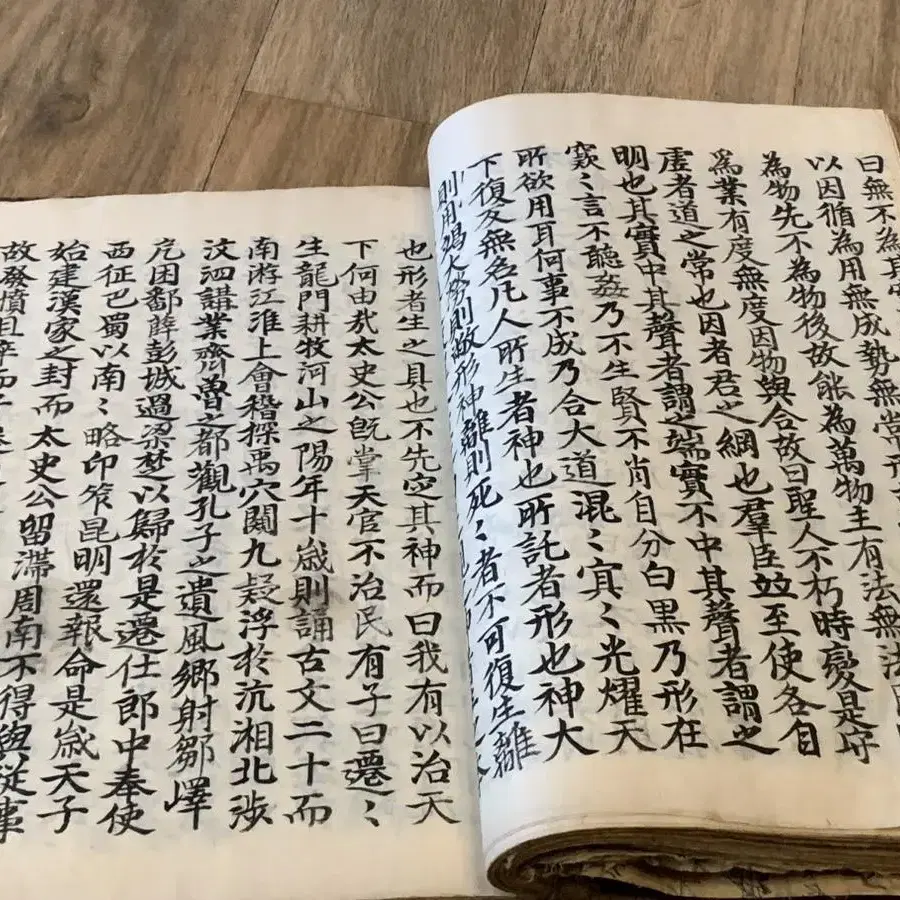 曰無不為其
以因循為用無成勢無常形
為物先不為物後故能為萬物主有法無法
為業有度無度因物與合故曰聖人不朽時變是守
虛者道之常也因者君之綱也羣臣並至使各自
明也其實中其聲者謂之端實不中其聲者謂之
窾〻言不聽姦乃不生賢不肖自分白黑乃形在
所欲用耳何事不成乃合大道混〻冥〻光耀天
下復反無名凡人所生者神也所託者形也神大
則用竭大勞則敝形神離則死〻者不可復生離
也形者生之具也不先定其神而曰我有以治天
下何由㢤太史公旣掌天官不治民有子曰遷〻
生龍門耕牧河山之陽年十歲則誦古文二十而
南游江淮上會稽探禹穴闚九疑浮於沅湘北涉
汶泗講業齊魯之都觀孔子之遺風鄉射鄒嶧
戹困鄱薛彭城過梁楚以歸於是遷仕郎中奉使
西征巴蜀以南〻略邛笮昆明還報命是歲天子
始建漢家之封而太史公留滯周南不得與從事
故發憤且卒而子